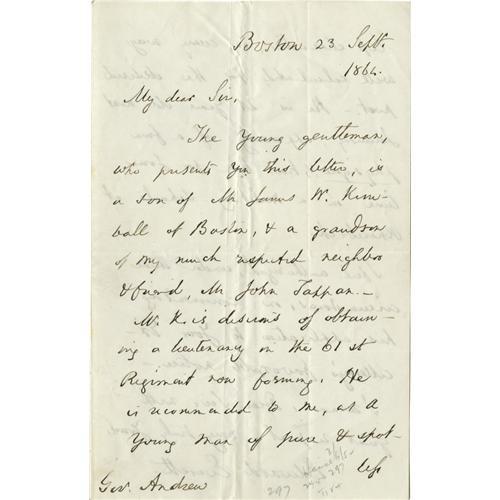 Boston 23 Sept.
1864.
My dear Sir,
The Young gentleman,
who presents you this letter, is
a son of Mr James W. Kim-
ball of Boston, & a grandson
of my much respected neighbor
& friend, Mr John Tappan. -
Mr. K. is desirous of obtain-
ing a lieutenancy in the 61 st
Regiment now forming. He
is recommended to me, as a
Young man of pure & spot-
less
Gov. Andrew
297